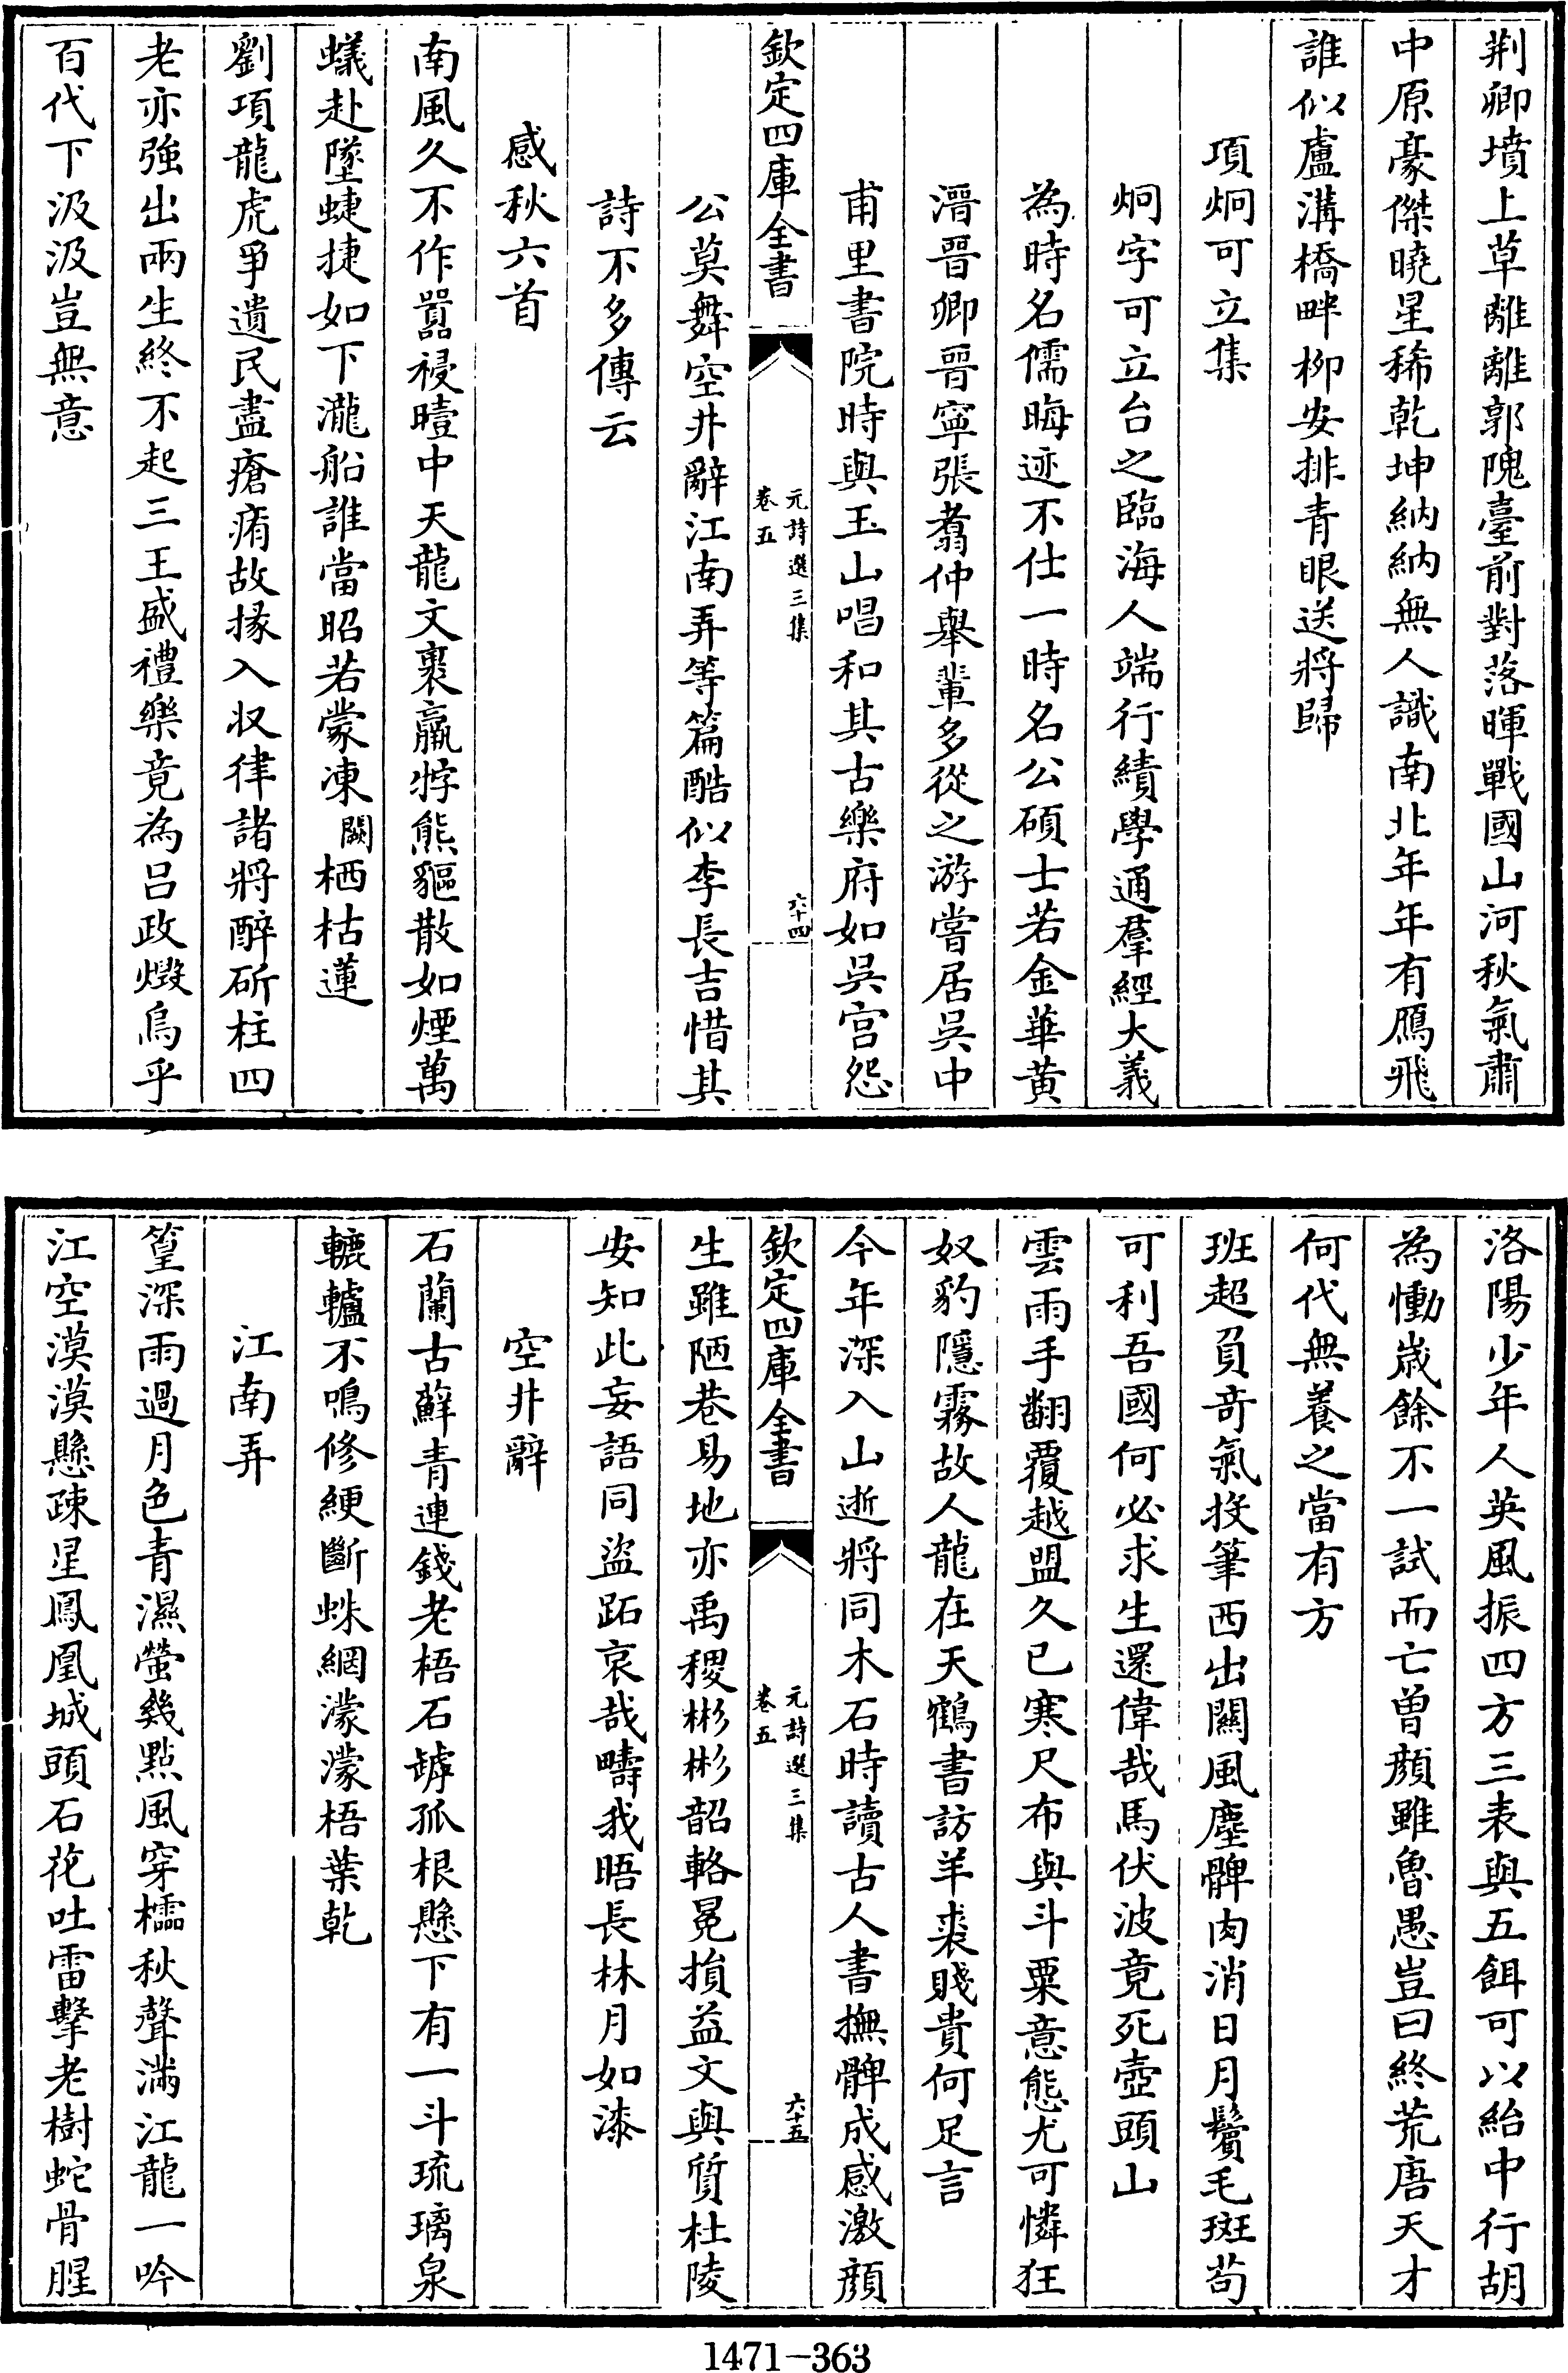 荆卿墳上草離離郭隗臺前對落暉戰國山河秋氣肅
中原豪傑曉星稀乾坤納納無人識南北年年有鴈飛
誰似盧溝橋畔柳安排青眼送將歸
項炯可立集
炯字可立台之臨海人端行績學通羣經大義
為時名儒晦迹不仕一時名公碩士若金華黄
溍晉卿晉寧張翥仲舉輩多從之游嘗居吳中
甫里書院時與玉山唱和其古樂府如吳宫怨
欽定四庫全書
元詩選三集
卷五
六十四
公莫舞空井辭江南弄等篇酷似李長吉惜其
詩不多傳云
感秋六首
南風久不作嚣祲曀中天龍文裹羸牸熊貙散如煙萬
蟻赴墜蜨捷如下瀧船誰當昭若蒙凍闕栖枯蓮
劉項龍虎爭遺民盡瘡痏故掾入収律諸將醉斫柱四
老亦強出兩生終不起三王盛禮樂竟為吕政燬烏乎
百代下汲汲豈無意
洛陽少年人英風振四方三表與五餌可以紿中行胡
為慟歲餘不一試而亡曾顔雖魯愚豈曰終荒唐天才
何代無養之當有方
班超負奇氣投筆西出關風塵髀肉消日月鬢毛斑苟
可利吾國何必求生還偉哉馬伏波竟死壺頭山
雲雨手翻覆越盟久已寒尺布與斗粟意態尤可憐狂
奴豹隱霧故人龍在天鶴書訪羊裘賤貴何足言
今年深入山逝將同木石時讀古人書撫髀成感激顔
欽定四庫全書
元詩選三集
卷五
六十五
生雖陋巷易地亦禹稷彬彬韶輅冕損益文與質杜陵
安知此妄語同盜跖哀哉疇我晤長林月如漆
空井辭
石蘭古蘚青連錢老梧石罅孤根懸下有一斗琉璃泉
轆轤不鳴修綆斷蛛網濛濛梧葉乾
江南弄
篁深雨過月色青濕螢幾點風穿櫺秋聲滿江龍一吟
江空漠漠懸疎星鳳凰城頭石花吐雷擊老樹蛇骨腥
1471-363